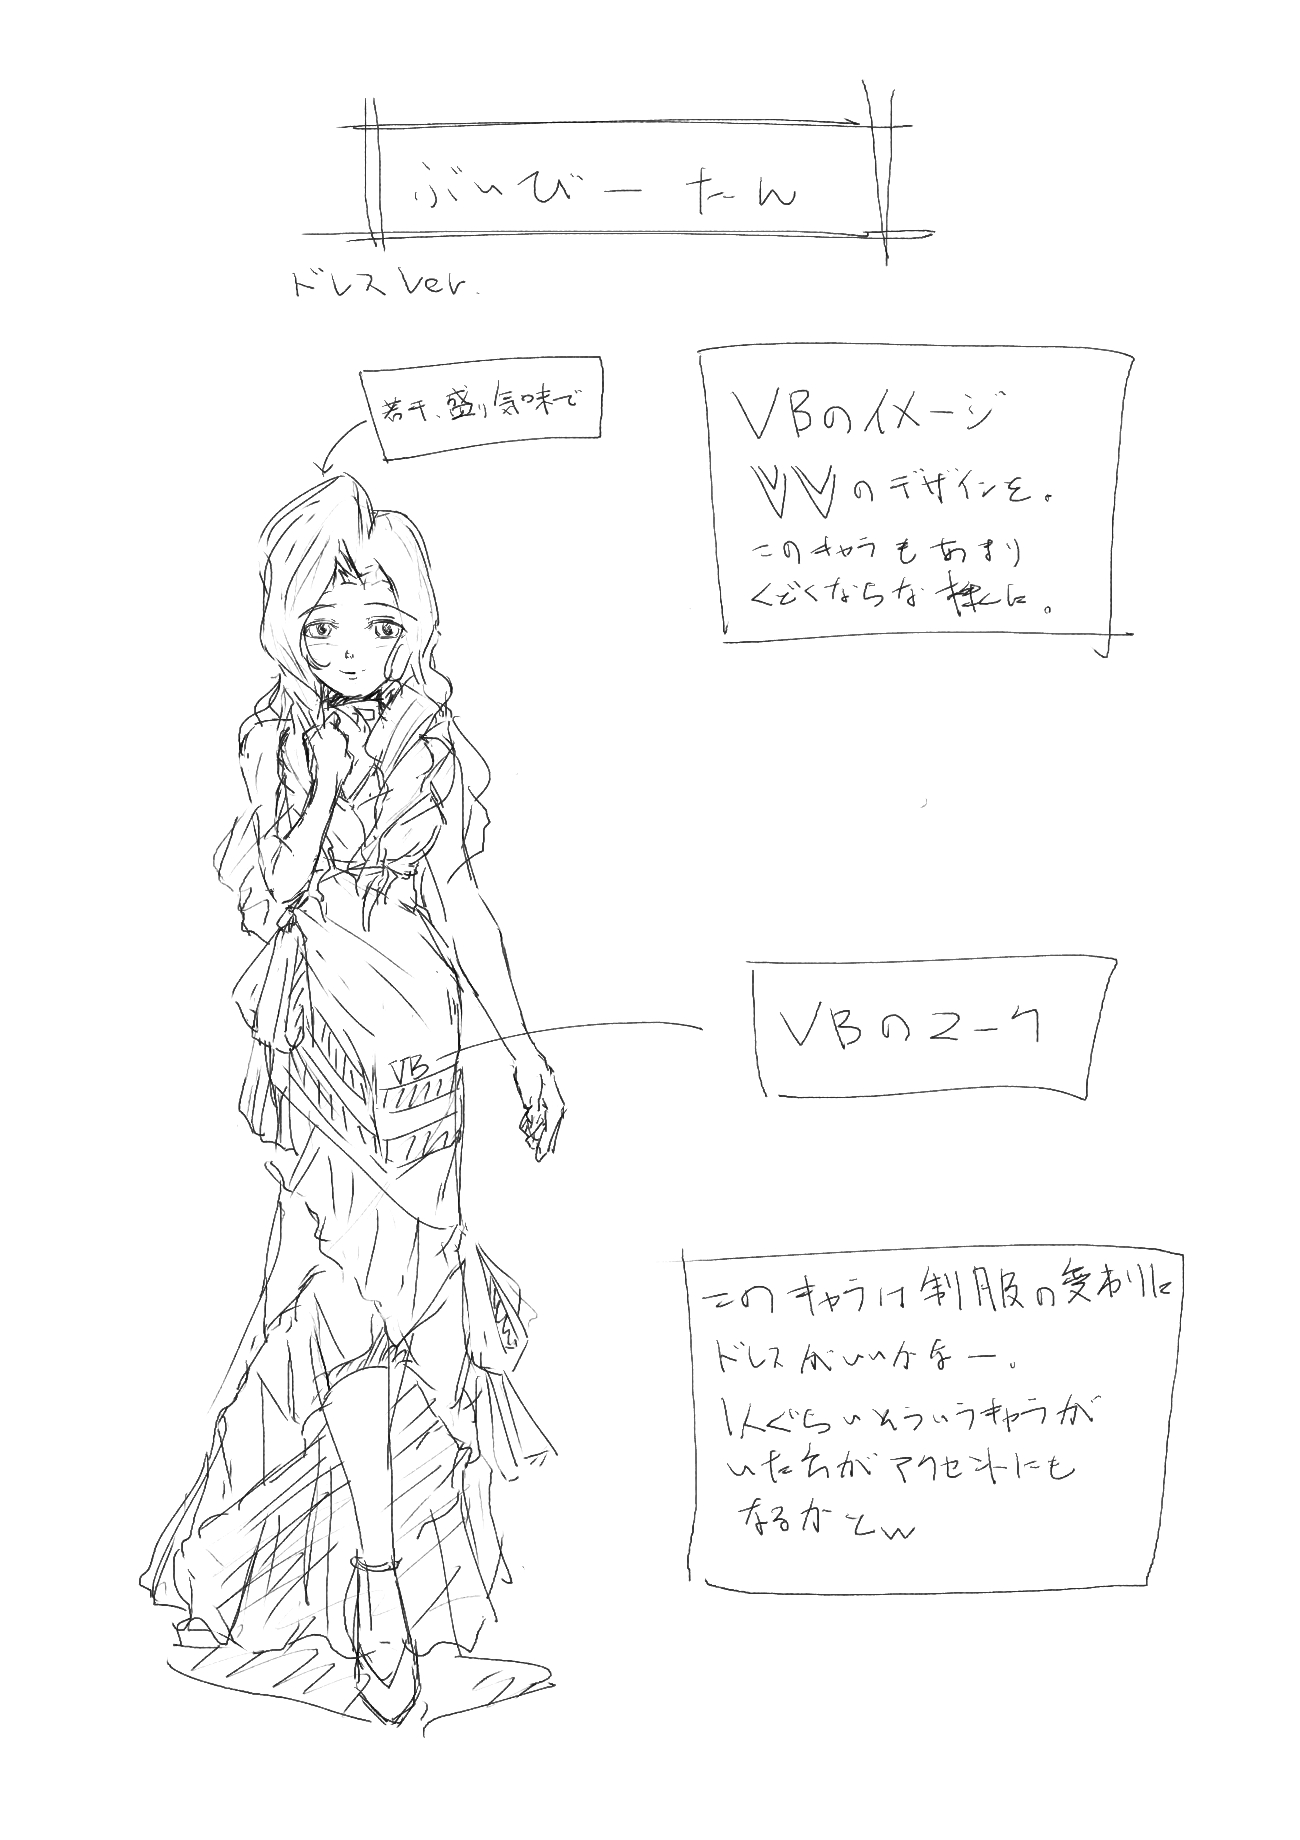 ぶいびーたん
ドレスVer.
若干、盛り気味で
VBのイメージ
VVのデザインを。
このキャラもあまり
くどくならな様に。
VB
VBのマーク
このキャラは制服の変わりに
ドレスがいいかなー。
1人ぐらいそういうキャラが
いた方がアクセントにも
なるかとw